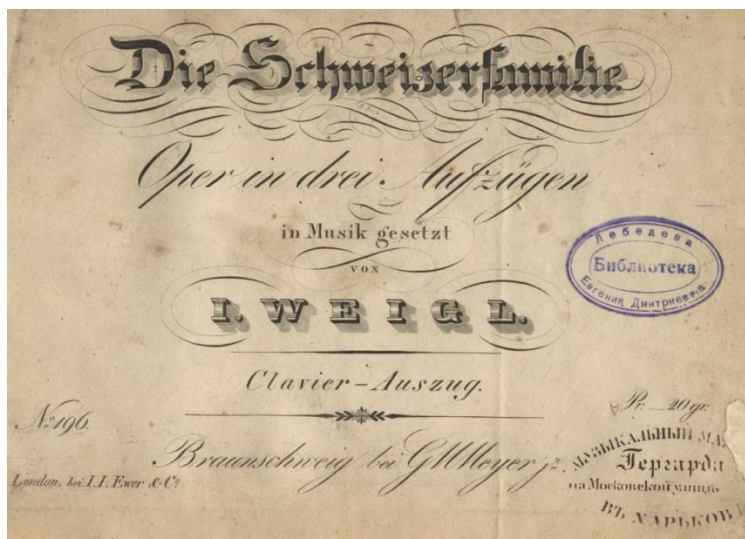 Die Schweizerfamilie
Oper in drei Aufzügen
in Musik gesetzt
VON
I. WEIGL.
Clavier-Auszug.
Лебедева
Библиотека
Евгения Дмитриевича
No 196.
Pr. 20 gr.
Braunschweig bei G M Meyer jr.
London, bei I. I. Ewer & Co
МУЗЫКАЛЬНЫЙ
Гергарда
на Московской улицѣ
ВЪ ХАРЬКОВ